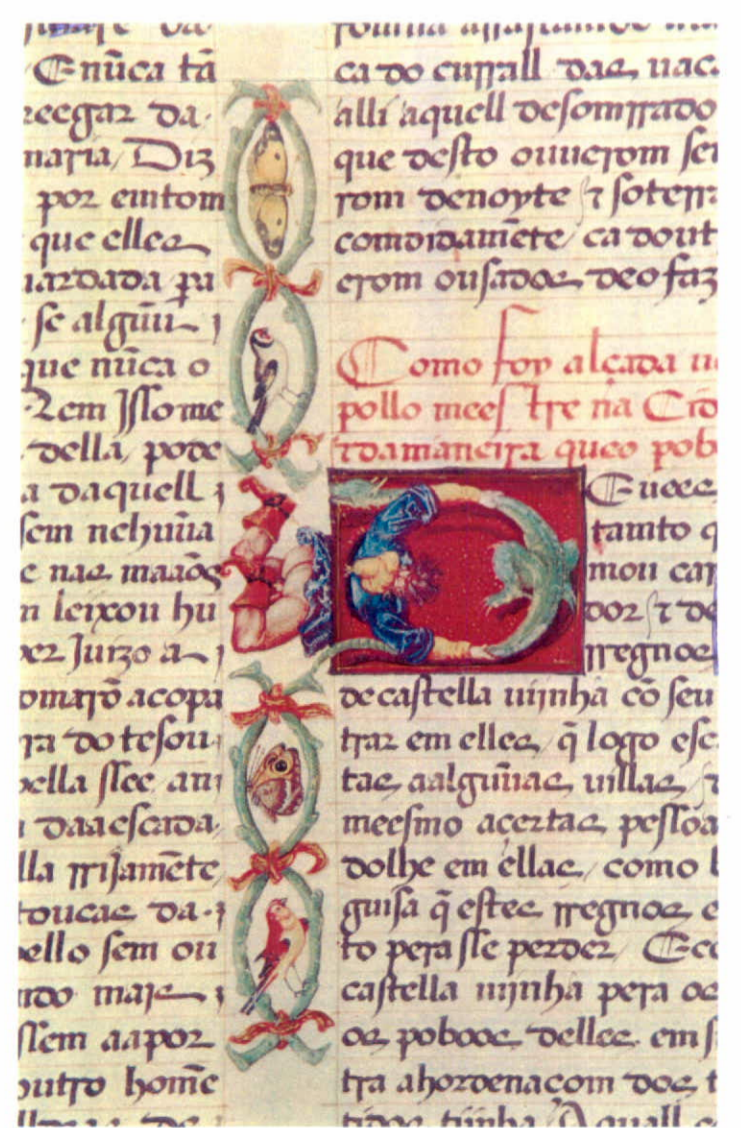 E nũca tã
reegar da
maria, Diz
por emtom
que elles
uardada pa
se algũu
que nũca o
della, pode
a daquell
sem nehũua
e nas maãos
n leixou hu
per Juizo a
omarõ acopa
ra do tesou
daaescada
lla rrijamẽte
toucas da
ello sem ou
ndo mais
ssem aapor
outro homẽ
ca do currall das uac
alli aquell desomrrado
que desto ouuerom sei
rom denoyte ⁊ soterr
comdidamẽte, ca dout
erom ousados deo faz
Como foy alçada u
pollo meestre na Cid
⁊ damaneira queo pob
uees
tamto q
mou car
dor, ⁊ de
rregnos
de castella uijnha cõ seu
trar em elles, q̃ logo esc
tas aalgũuas uillas, ⁊
meesmo acertas pessoa
dolhe em ellas, como b
guisa q̃ estes rregnos e
to pera sse perder, E co
castella uijnha pera os
os poboos delles, em s
tra ahordenacom dos t
tidos tijnha, A quall c